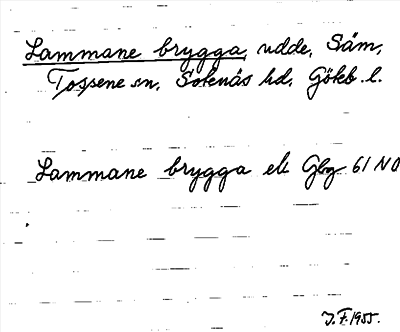 Lammane brygga, udde, Säm,
Tossene sn, Sotenäs hd, Gökb. l.
Lammane brygga ek Gbg 61 NO
J.F. 1955.